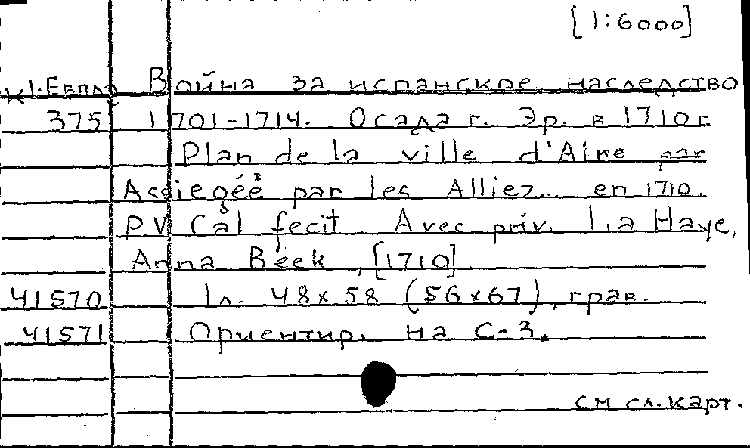 [1:6000]
К1.Европ Война за испанское наследство
375 1701-1714. Осада г. Эр. в 1710 г.
Plan de la ville d'Aire par
Assiegée par les Alliez.. en 1710.
P.V Cal fecit Avec priv. La Haye,
Anna Beek, [1710]
41570 1л. 48x58 (56x67), грав.
41571 Ориентир. на С-З.
см сл. карт.